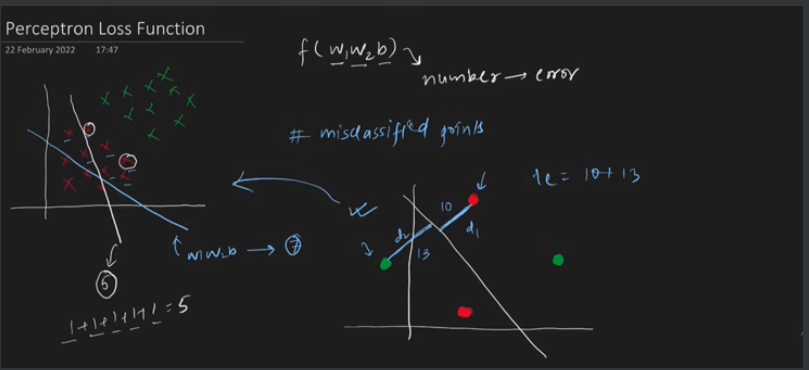 Perceptron Loss Function
22 February 2022 17:47
f(w1w2b)
number → error
# misclassified points
10
d1
d2
13
= 10+13
w1w2b → 7
5
1+1+1+1+1=5